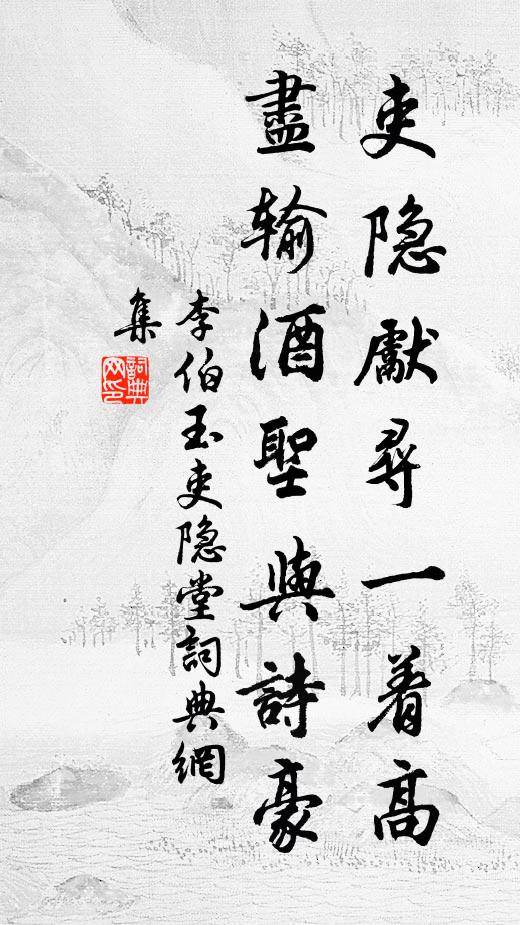 吏隐獻尋一着高
盡输酒聖與詩豪
李伯玉吏隐堂詞典網
集
詞典
网印